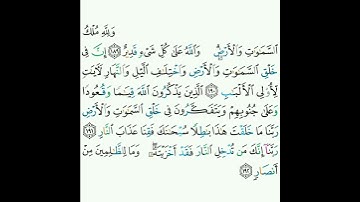 وَلِلَّهِ مُلْكُ
السَّمَاوَاتِ وَالْأَرْضِ وَاللَّهُ عَلَىٰ كُلِّ شَيْءٍ قَدِيرٌ ١٨٩ إِنَّ فِي
خَلْقِ السَّمَاوَاتِ وَالْأَرْضِ وَاخْتِلَافِ اللَّيْلِ وَالنَّهَارِ لَآيَاتٍ
لِأُولِي الْأَلْبَابِ ١٩٠ الَّذِينَ يَذْكُرُونَ اللَّهَ قِيَامًا وَقُعُودًا
وَعَلَىٰ جُنُوبِهِمْ وَيَتَفَكَّرُونَ فِي خَلْقِ السَّمَاوَاتِ وَالْأَرْضِ
رَبَّنَا مَا خَلَقْتَ هَٰذَا بَاطِلًا سُبْحَانَكَ فَقِنَا عَذَابَ النَّارِ ١٩١
رَبَّنَا إِنَّكَ مَن تُدْخِلِ النَّارَ فَقَدْ أَخْزَيْتَهُ ۖ وَمَا لِلظَّالِمِينَ مِنْ
أَنصَارٍ ١٩٢